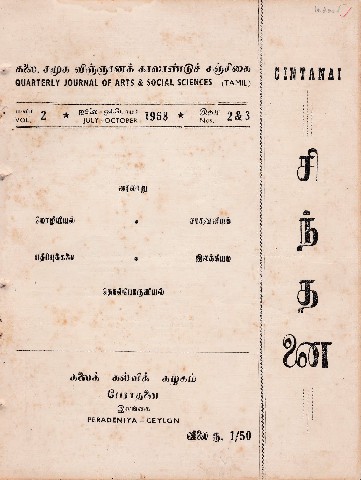 கலை, சமூக விஞ்ஞானக் காலாண்டுச் சஞ்சிகை
QUARTERLY JOURNAL OF ARTS & SOCIAL SCIENCES (TAMIL)
மலர் 2 ★ ஜூலை-ஒக்டோபர் 1968 ★ இதழ் 2 & 3
VOL. JULY-OCTOBER Nos.
வரலாறு
மொழியியல் • சாசனவியல்
பதிப்புக்கலை • இலக்கியம்
தொல்பொருளியல்
கலைக் கல்விக் கழகம்
பேராதனை
இலங்கை
PERADENIYA - CEYLON
விலை ரூ. 1/50
CINTANAI
சிந்தனை